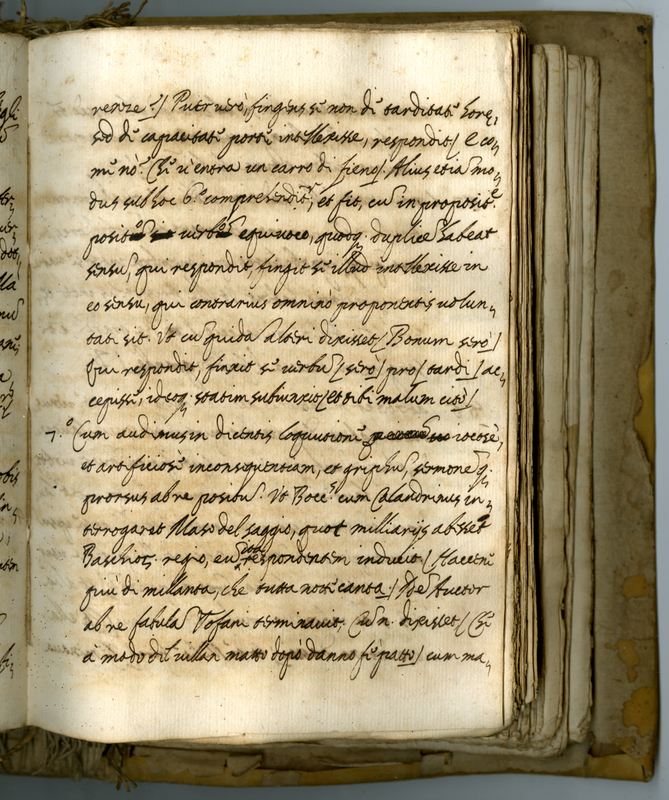 renze?/ Puer verò, fingens sē non dē tarditatē horę,
sed dē capacitatē portę intellexisse, respondit/ E co,
mē nò? Chē v'entra un carro di fieno/. Alius etiā mo,
dus sub hoc 6.º comprehenditr, et fit, cū in proposite
equivoco, quodq. duplicē habeat
sensū, qui respondit, fingit sē illud intellexisse in
eo sensu, qui contrarius omninò proponentis volun,
tati sit. Vt cū quidā alteri dixisset/ Bonum serò/
Qui respondit, finxit sē verbū/ serò/ pro/ tardi/ ac,
cepisse, ideoq. statim subiunxit/ Et tibi malum citò/
7.º Cum audimus in dicentis loquutionē iocosē,
et artificiosē inconsequentiam, et griphū, sermonēq.
prorsus ab re positū. Vt Bocc.s cum Calandrinus in,
terrogaret Maso del saggio, quot milliarijs abesset
Baschior. regio, eū respondentem inducit/ Haccene
più di millanta, che tutta notte canta/ Idē Auctor
ab re fabulā Tofani terminavit, Cū n. dixisset/ Chē
à modo del villan matto dopò danno fē patto/ cum ma,